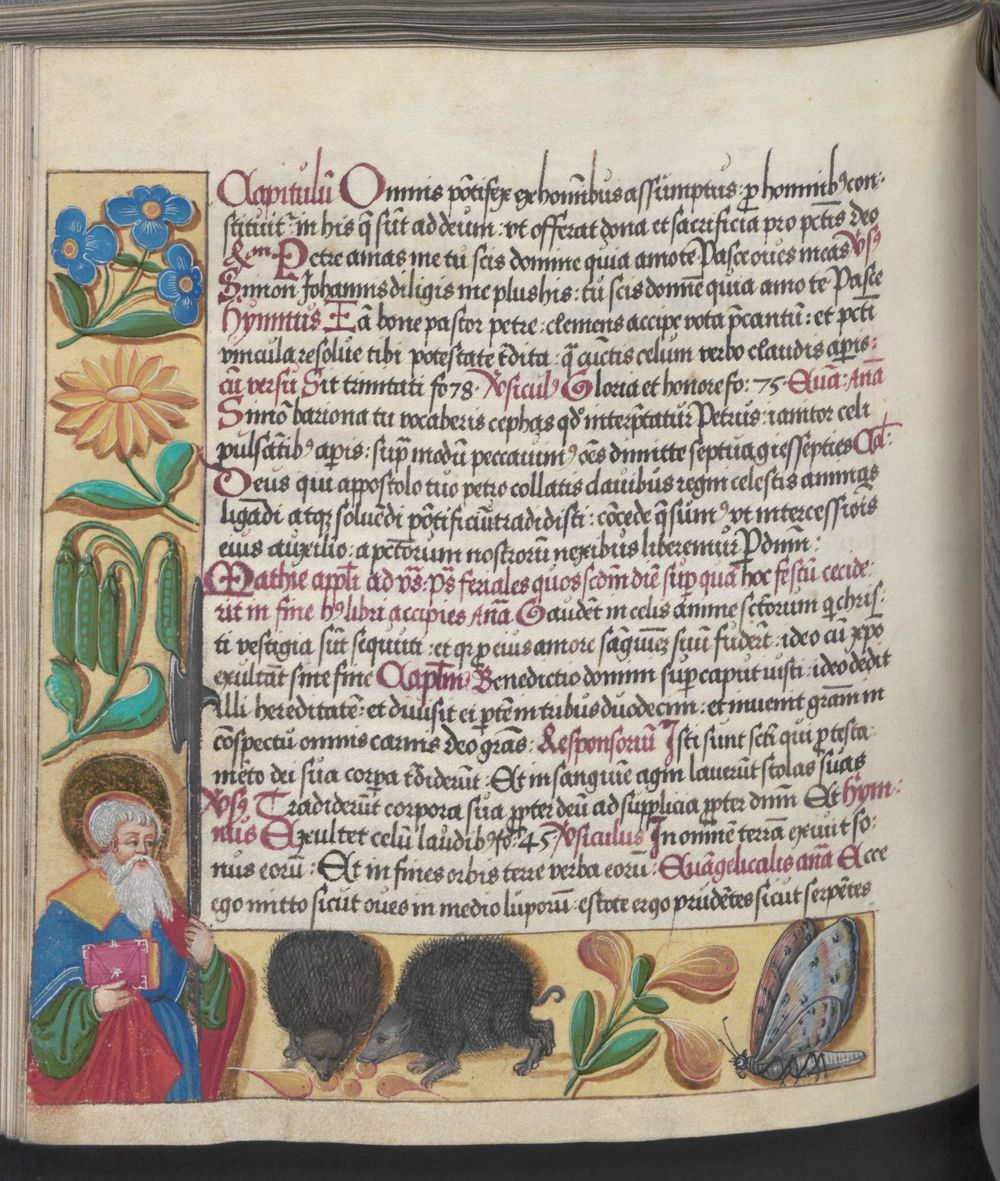 Capitulū Omnis pōtifex ex hominibus assumptus: p hominibꝰ con-
stituit̄ in his q̄ sūt ad deum: vt offerat dona et sacrificia pro pctīs deo
Petre amas me tu scis domine quia amo te Pasce oues meas Vsꝰ
Simon Johannis diligis me plus his: tu scis domīe quia amo te Pasce
Hymnus Iā bone pastor petre: clemens accipe vota p̄cantū: et pctī
vincula resolue tibi potestate t̄dita: q̄ cūctis celum verbo claudis apis:
cū versu Sit trinitati fo 78. Vsiculꝰ Gloria et honore fo: 75 Euā: Anā
Simō bariona tu vocaberis cephas qd' interp̄tatur Petrus: ianitor celi
pulsātibꝰ apis: sup̄ modū peccauimꝰ oēs dimitte septuagies septies Col:
Deus qui appostolo tuo petro collatis clauibus regni celestis animas
ligādi atqꝫ soluēdi pōtificiū tradidisti: cōcede q̄sumꝰ vt intercessiōis
eius auxilio: a pctorum nostrorū nexibus liberemur P dnm:
Mathie appli ad vs̄: ps̄ feriales quos scdm̄ diē sup̄ quā hoc festū cecide-
rit in fine hꝰ libri accipies Anā Gaudēt in celis anime sctorum q christ-
ti vestigia sūt sequuti: et qr p eius amore sāguinē suū fuderūt: ideo cū xpo
exultāt sine fine Capt̄lm Benedictio domini sup caput iusti: ideo dedit
illi hereditatē: et diuisit ei ptem in tribus duodecim: et inuenit gram̄ in
cōspectu omnis carnis deo grās: Responsoriū Isti sunt sctī qui p testa-
mēto dei sua corpa t̄diderūt: Et in sanguine agni lauerūt stolas suas
Vsꝰ Tradiderūt corpora sua ppter deū ad supplicia ppter dnm Et Hym-
nus Exultet celū laudibꝰ fo: 45 Vsiculus In omnē terrā exiuit so-
nus eorū: Et in fines orbis terre verba eorū: Euāgelicalis anā Ecce
ego mitto sicut oues in medio luporū: estote ergo prudētes sicut serpētes